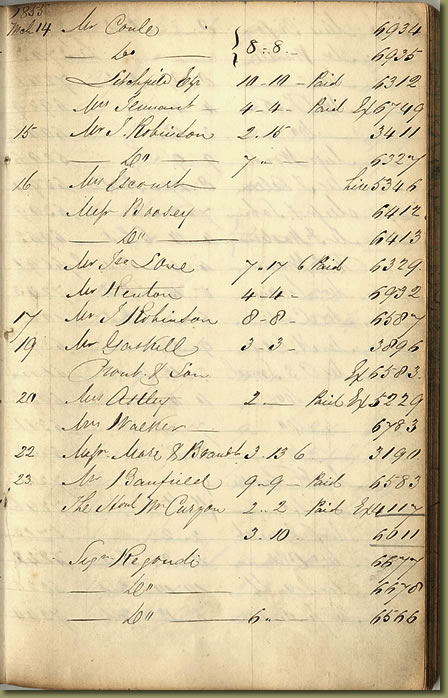 1855
Mch 14 Mr Coule 6934
— Do 8 - 8 - 6935
Litchfield Esq 10 - 10 - Paid 6312
Mrs Tennant 4 - 4 - Paid Ex 6749
15 Mr J. Robinson 2. 15 3411
— Do — 7 " - 6327
16 Mrs Escourt — 5346
Messr Boosey 6412
— Do — 6413
Mr Jno Love 7 . 17 6 Paid 6329
Mr Newton 4 - 4 - 6932
17 Mr J Robinson 8 - 8 - 6587
19 Mr Gaskell 3 . 3 - 3896
Prout & Son Ex 6583
20 Mrs Astley 2 — Paid Ex 5229
Mrs Walker — 6783
22 Messr More & Brandt 3 . 13 6 3190
23 Mr Banfield 9 - 9 - Paid 6583
The Honl Wm Curzon 2 - 2 Paid Ex 4117
3 . 10 . 6011
Sigr Regondi 6677
— Do — 6678
— Do — 6 " - 6566